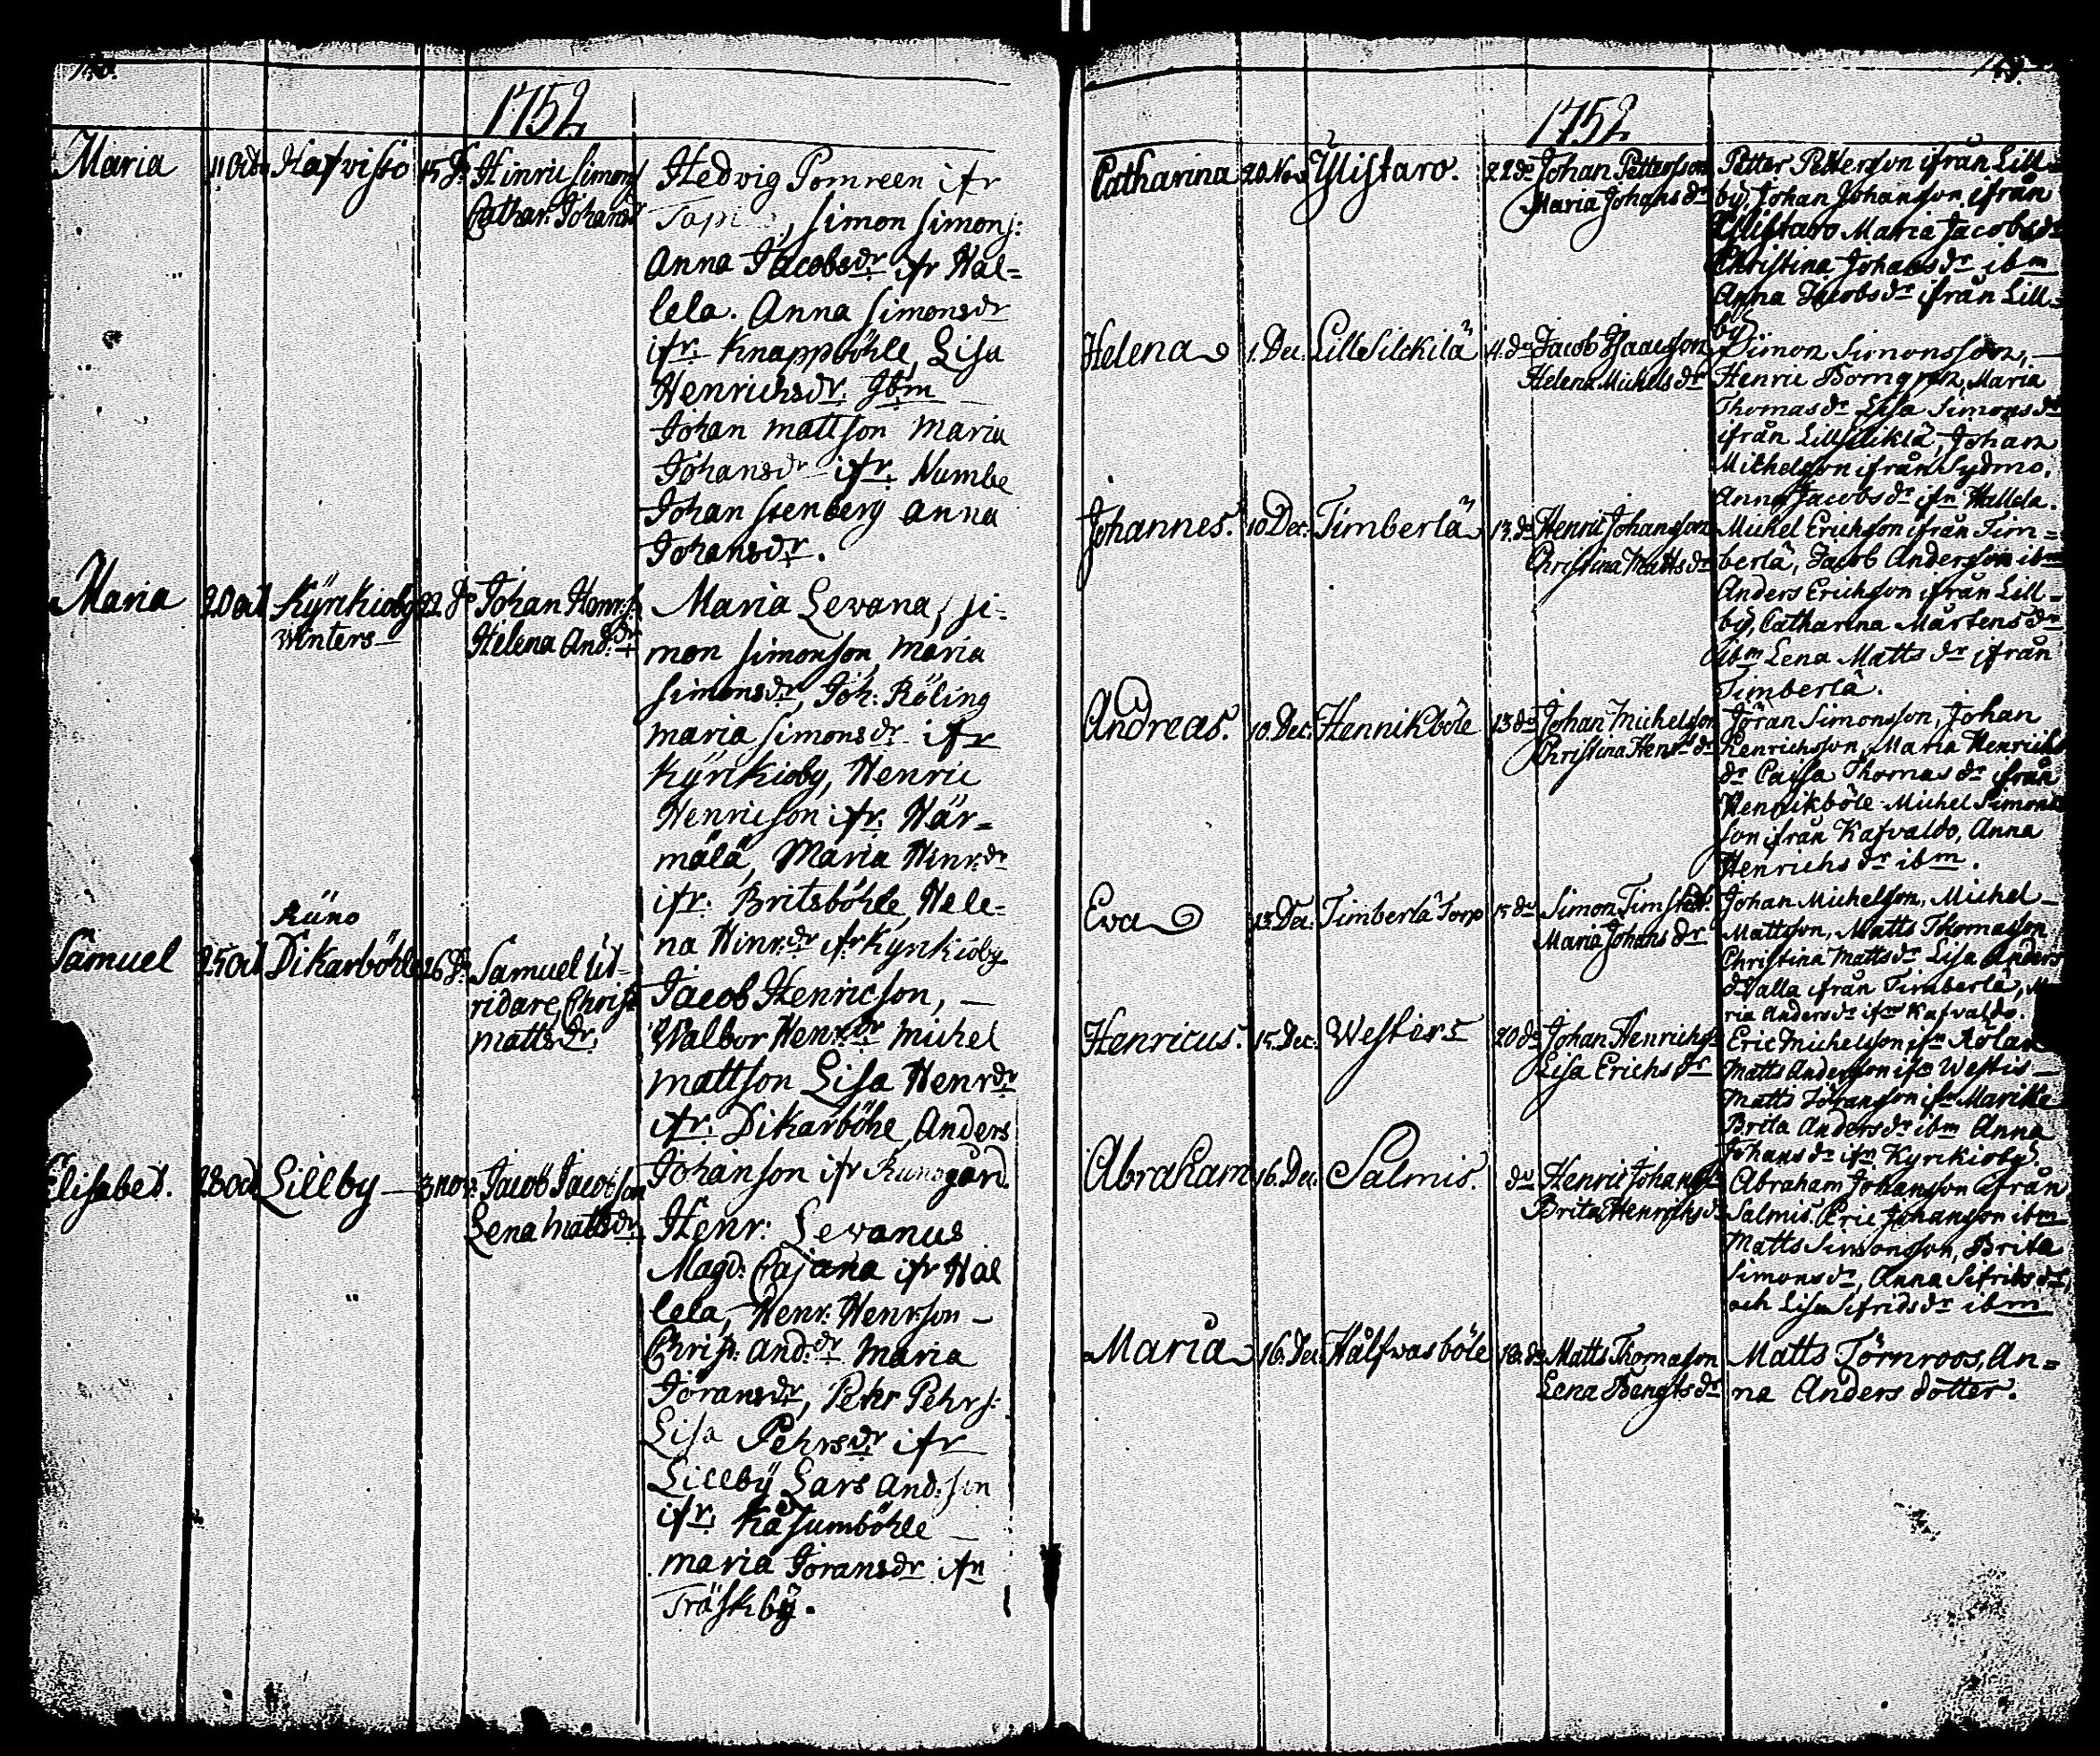 1752
Maria 11 Octb Hafvisto 15 do Hinric Simons Hedvig Pomreen ifr
Cathar. Johansd Simon Simons:
Anna Jacobsdr ifr Hal=
lela. Anna Simonsdr
ifr. Knappböhle, Lisa
Henrichsdr. Ibm
Johan Mattson Maria
Johansdr ifr. Numbe
Johan Stenberg Anna
Johansdr.
Maria 20 Oct Kÿrkioby 22 do Johan Henr:s Maria Levana, Si-
Winters Helena And.dr mon Simonson, Maria
Simonsdr, Joh: Röling
Maria Simonsdr ifr
Kÿrkioby, Henric
Henricson ifr. Här=
mälä, Maria Henr.dr
ifr. Britsböhle, Hele=
Rüno na Hinr.dr ifr Kyrkioby
Samuel 25 Oct Dikarböhle 26 do Samuel Ut-
ridare, Christ Jacob Henricson, —
Mattsdr. Walbor Henr.dr Michel
Mattson Lisa Henrdr
ifr. Dikarböhle, Anders
Johanson ifr Runogård
Elisabet. 28 Oct Lillby — 3 nov: Jacob Jacobson
Lena Mattsdr. Henr: Levanus
Magd: Cajana ifr Hal
lela, Henr: Henrson —
Christ: And:dr Maria
Joransdr, Pehr Pehrs:
Lisa Pehrsdr ifr
Lillbÿ Lars And:son
ifr. Kåsumböhle —
Maria Joransdr ifn
Träskbÿ.
1752
Catharina 20. Nov Ÿlistaro. 22 do Johan Pettersson Petter Petterson ifrån Lill=
Maria Johans dr by, Johan Johanson, ifrån
Ÿlistaro Maria Jacobs dr
Christina Johans dr ibm
Anna Jacobs dr ifrån Lill=
by
Helena 1. Dec. Lille Silckilä 4. do Jacob Isaacsson Simon Simonsson, —
Helena Michels dr Henric Borngren, Maria
Thomas dr Lisa Simons dr
ifrån Lillsilikilä, Johan
Michelson ifrån Sydmo,
Anna Jacobs dr ifn Hallela.
Johannes. 10 Dec. Timberlä 13. do Henric Johansson Michel Erichson ifrån Tim=
Christina Matts dr berlä, Jacob Anderson ibm
Anders Erichson ifrån Lill=
by, Catharina Mårtens dr
ibm Lena Matts dr ifrån
Timberlä.
Andreas. 10. Dec. Hennikböle 13 do Johan Michelson Jöran Simonsson, Johan
Christina Henr dr Henrichsson, Maria Henrichs
dr Caisa Thomas dr ifrån
Hennikböle Michel Simons
son ifrån Kafvaldo, Anna
Henrichs dr ibm.
Eva 13. Dec. Timberlä Torp 15 do Simon Timstedt. Johan Michelson, Michel —
Maria Johans dr Mattson, Matts Thomasson
Christina Matts dr Lisa Anders
dr alla ifrån Timberlä, Ma
ria Anders dr ifrn Kafvaldo.
Henricus. 15. Dec. Westers 20 do Johan Henrichs Eric Michelson ifn Rölan
Lisa Erichs dr Matts Anderson ifn Westis —
Matts Johanson ifn Marika
Brita Anders dr ibm Anna
Johans dr ifn Kyrkioby
Abraham 16. Dec. Salmis. do Henric Johans Abraham Johanson ifrån
Brita Henrichs d Salmis. Eric Johanson ibm
Matts Simonsson, Brita
Simons dr, Anna Sifrids dr,
och Lisa Sifrids dr ibm
Maria 16. Dec Hålfvasböle 18. do Matts Thomason Matts Törnroos, An=
Lena Bengts dr na Anders dotter.